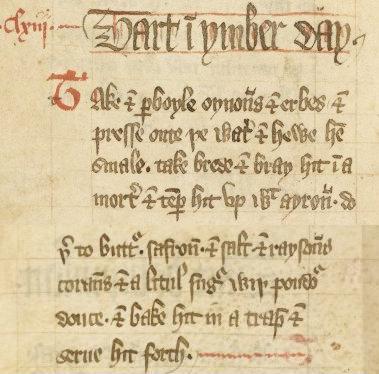 clxiij. Tart ī ymber day.
Take ⁊ ꝑboyle oynoūs ⁊ erbes ⁊
presse oute þe wat͛ ⁊ hewe hē
smale. take brede ⁊ bray hit ī a
mort͛ ⁊ teꝑ hit vp wͭ ayroū. do
þ͛ to butt͛. safroū. ⁊ salt. ⁊ raysoūs
coraūs ⁊ a litul sug͛ wiþ poudo͛
douce. ⁊ bake hit in a trap ⁊
serue hit forth.